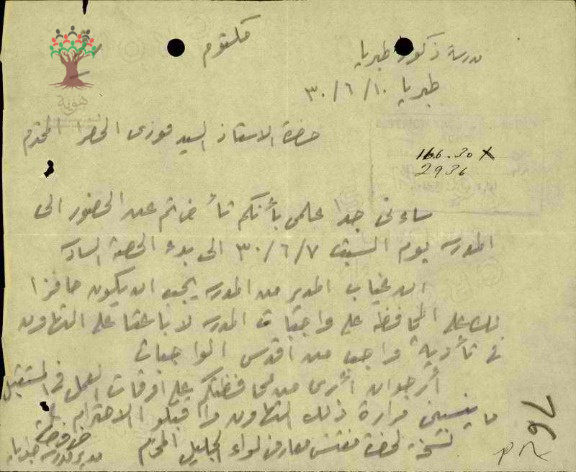 مكتوم
مدرسة ذكور طبريا
طبريا ٣٠/٦/١٠
هوية
حضرة الاستاذ السيد فوزي الخضرا المحترم
166.30
2936
ساءني جدا علمي بأنكم تأخرتم عن الحضور الى
المدرسة يوم السبت ٣٠/٦/٧ الى بدء الحصة السادسة
ان غياب المدير عن المدرسة يجب ان يكون حافزا
لك على المحافظة على واجبات المدرسة لا باعثا على التهاون
في تأدية واجب من أقدس الواجبات
أرجو ان أرى من محافظتكم على اوقات العمل في المستقبل
ما ينسيني مرارة ذلك التهاون واقبلوا الاحترام
نسخة لحضرة مفتش معارف لواء الجليل المحترم
مدير مدرسة طبريا
76